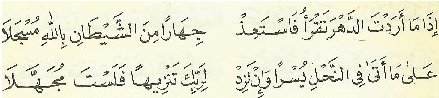 إِذَا مَا أَرَدْتَ الدَّهْرَ تَقْرَأُ فَاسْتَعِذْ جِهَارًا مِنَ الشَّيْطَانِ بِاللهِ مُسْجَلَا
عَلَى مَا أَتَى فِى النَّحْلِ يُسْرًا وَإِنْ تَزِدْ لِرَبِّكَ تَنْزِيهًا فَلَسْتَ مُجَهَّلَا